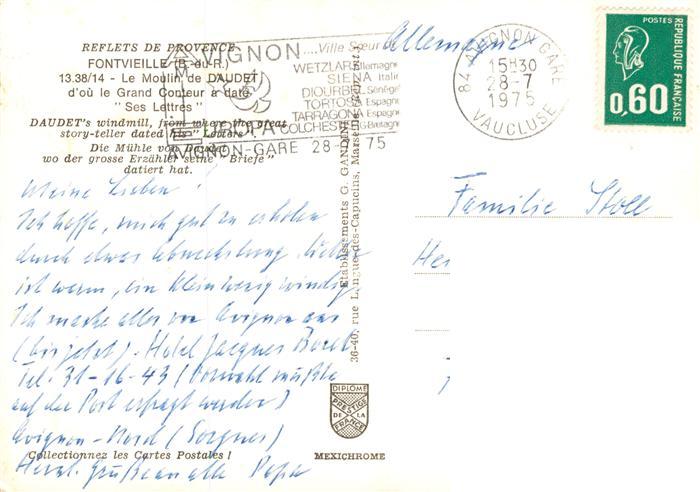 REFLETS DE PROVENCE
FONTVIEILLE (B.-du-R.)
13.38/14 - Le Moulin de DAUDET
d'où le Grand Conteur a daté
"Ses Lettres"
DAUDET'S windmill, from where the great
story-teller dated his "Letters"
Die Mühle von Daudet
wo der grosse Erzähler seine "Briefe"
datiert hat.
AVIGNON ....Ville Sœur
WETZLAR Allemagne
SIENA Italie
DIOURBEL Sénégal
TORTOSA Espagne
TARRAGONA Espagne
COLCHESTER G-Bretagne
EUROPA
AVIGNON-GARE 28-7 75
Allemagne
84 AVIGNON GARE
15H30
28-7
1975
VAUCLUSE
POSTES
REPUBLIQUE FRANÇAISE
0,60
Meine Lieben!
Ich hoffe, mich gut zu erholen
durch etwas Abwechslung.
ist warm, ein klein wenig windig
Ich mache alles von Avignon aus
(bis jetzt). Hotel Jacques
Tel. 31-16-43 (Vorwahl müßte
auf der Post erfragt werden)
Avignon-Nord (Sorgues)
Herzl. Grüße an alle Papa
Collectionnez les Cartes Postales !
Etablissements G. GANDINI
36-40, rue Longue-des-Capucins, Marseille
DIPLOME
PRESTIGE
DE LA
FRANCE
MEXICHROME
Familie Stoll